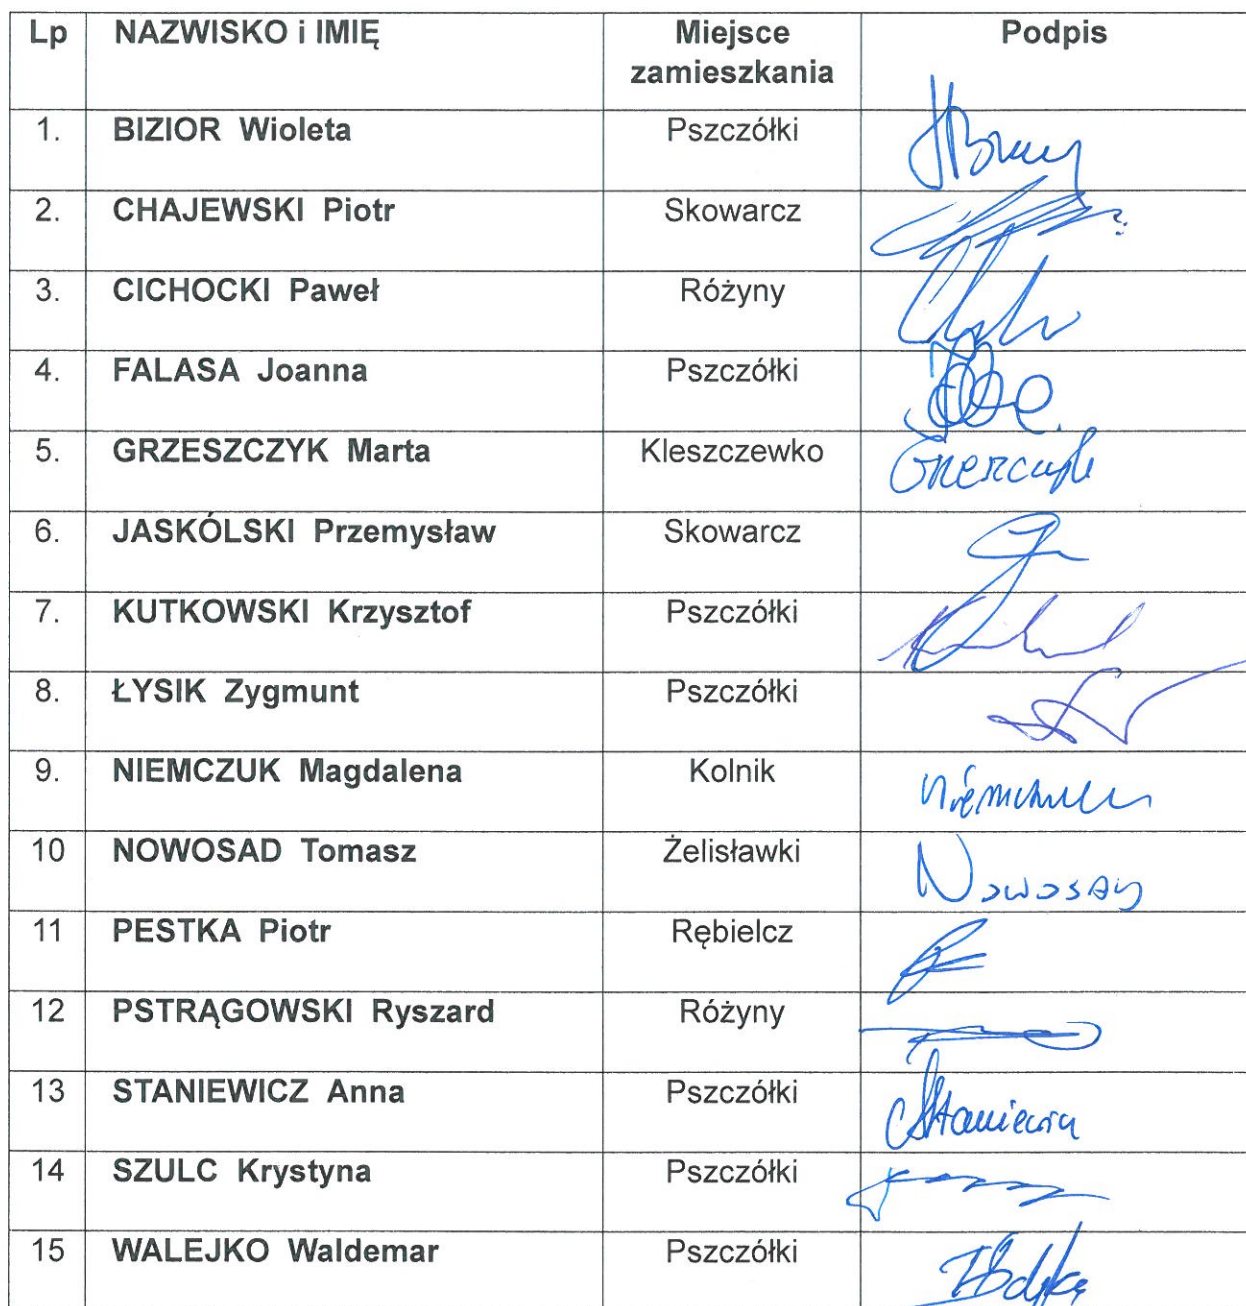 Lp NAZWISKO i IMIĘ Miejsce zamieszkania Podpis
1. BIZIOR Wioleta Pszczółki
2. CHAJEWSKI Piotr Skowarcz
3. CICHOCKI Paweł Różyny
4. FALASA Joanna Pszczółki
5. GRZESZCZYK Marta Kleszczewko
6. JASKÓLSKI Przemysław Skowarcz
7. KUTKOWSKI Krzysztof Pszczółki
8. ŁYSIK Zygmunt Pszczółki
9. NIEMCZUK Magdalena Kolnik
10 NOWOSAD Tomasz Żelisławki Nowosad
11 PESTKA Piotr Rębielcz
12 PSTRĄGOWSKI Ryszard Różyny
13 STANIEWICZ Anna Pszczółki
14 SZULC Krystyna Pszczółki
15 WALEJKO Waldemar Pszczółki